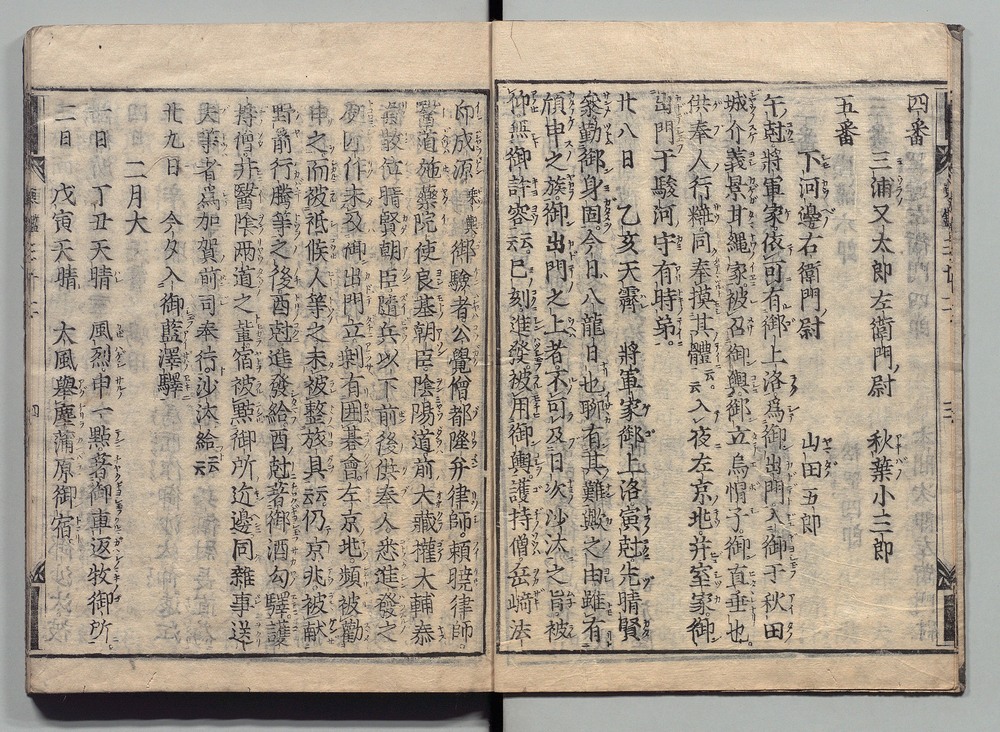 四番
三浦又太郎左衛門尉　秋葉小三郎
五番
下河邊右衛門尉　山田五郎
午尅將軍家依可有御上洛爲御出門入御于秋田
城介義景甘繩家被召御輿御立烏帽子御直垂也
供奉人行粧同奉摸其體云云入夜左京兆并室家御
出門于駿河守有時弟
廿八日　乙亥天霽　將軍家御上洛寅尅先晴賢
參勤御身固今日八龍日也聊有其難歟之由雖有
傾申之族御出門之上者不可及日次沙汰之旨被
仰無御許容云云巳刻進發被用御輿護持僧岳﨑法
印成源乘輿御驗者公覺僧都隆弁律師頼曉律師
醫道施藥院使良基朝臣陰陽道前大藏權大輔泰
貞散位晴賢朝臣隨兵以下前後供奉人悉進發之
後匠作未及御出門立剩有囲碁會左京兆頻被勸
申之而被祗候人等之未被整旅具云云仍京兆被献
野箭行騰等之後酉尅進發給酉尅著御酒匂驛護
持僧并醫陰两道之輩宿被點御所近邊同雜事送
夫等者爲加賀前司奉行沙汰給云云
廿九日　今夕入御藍澤驛
二月大
一日　丁丑天晴　風烈申一點著御車返牧御所
二日　戊寅天晴　大風擧塵蒲原御宿